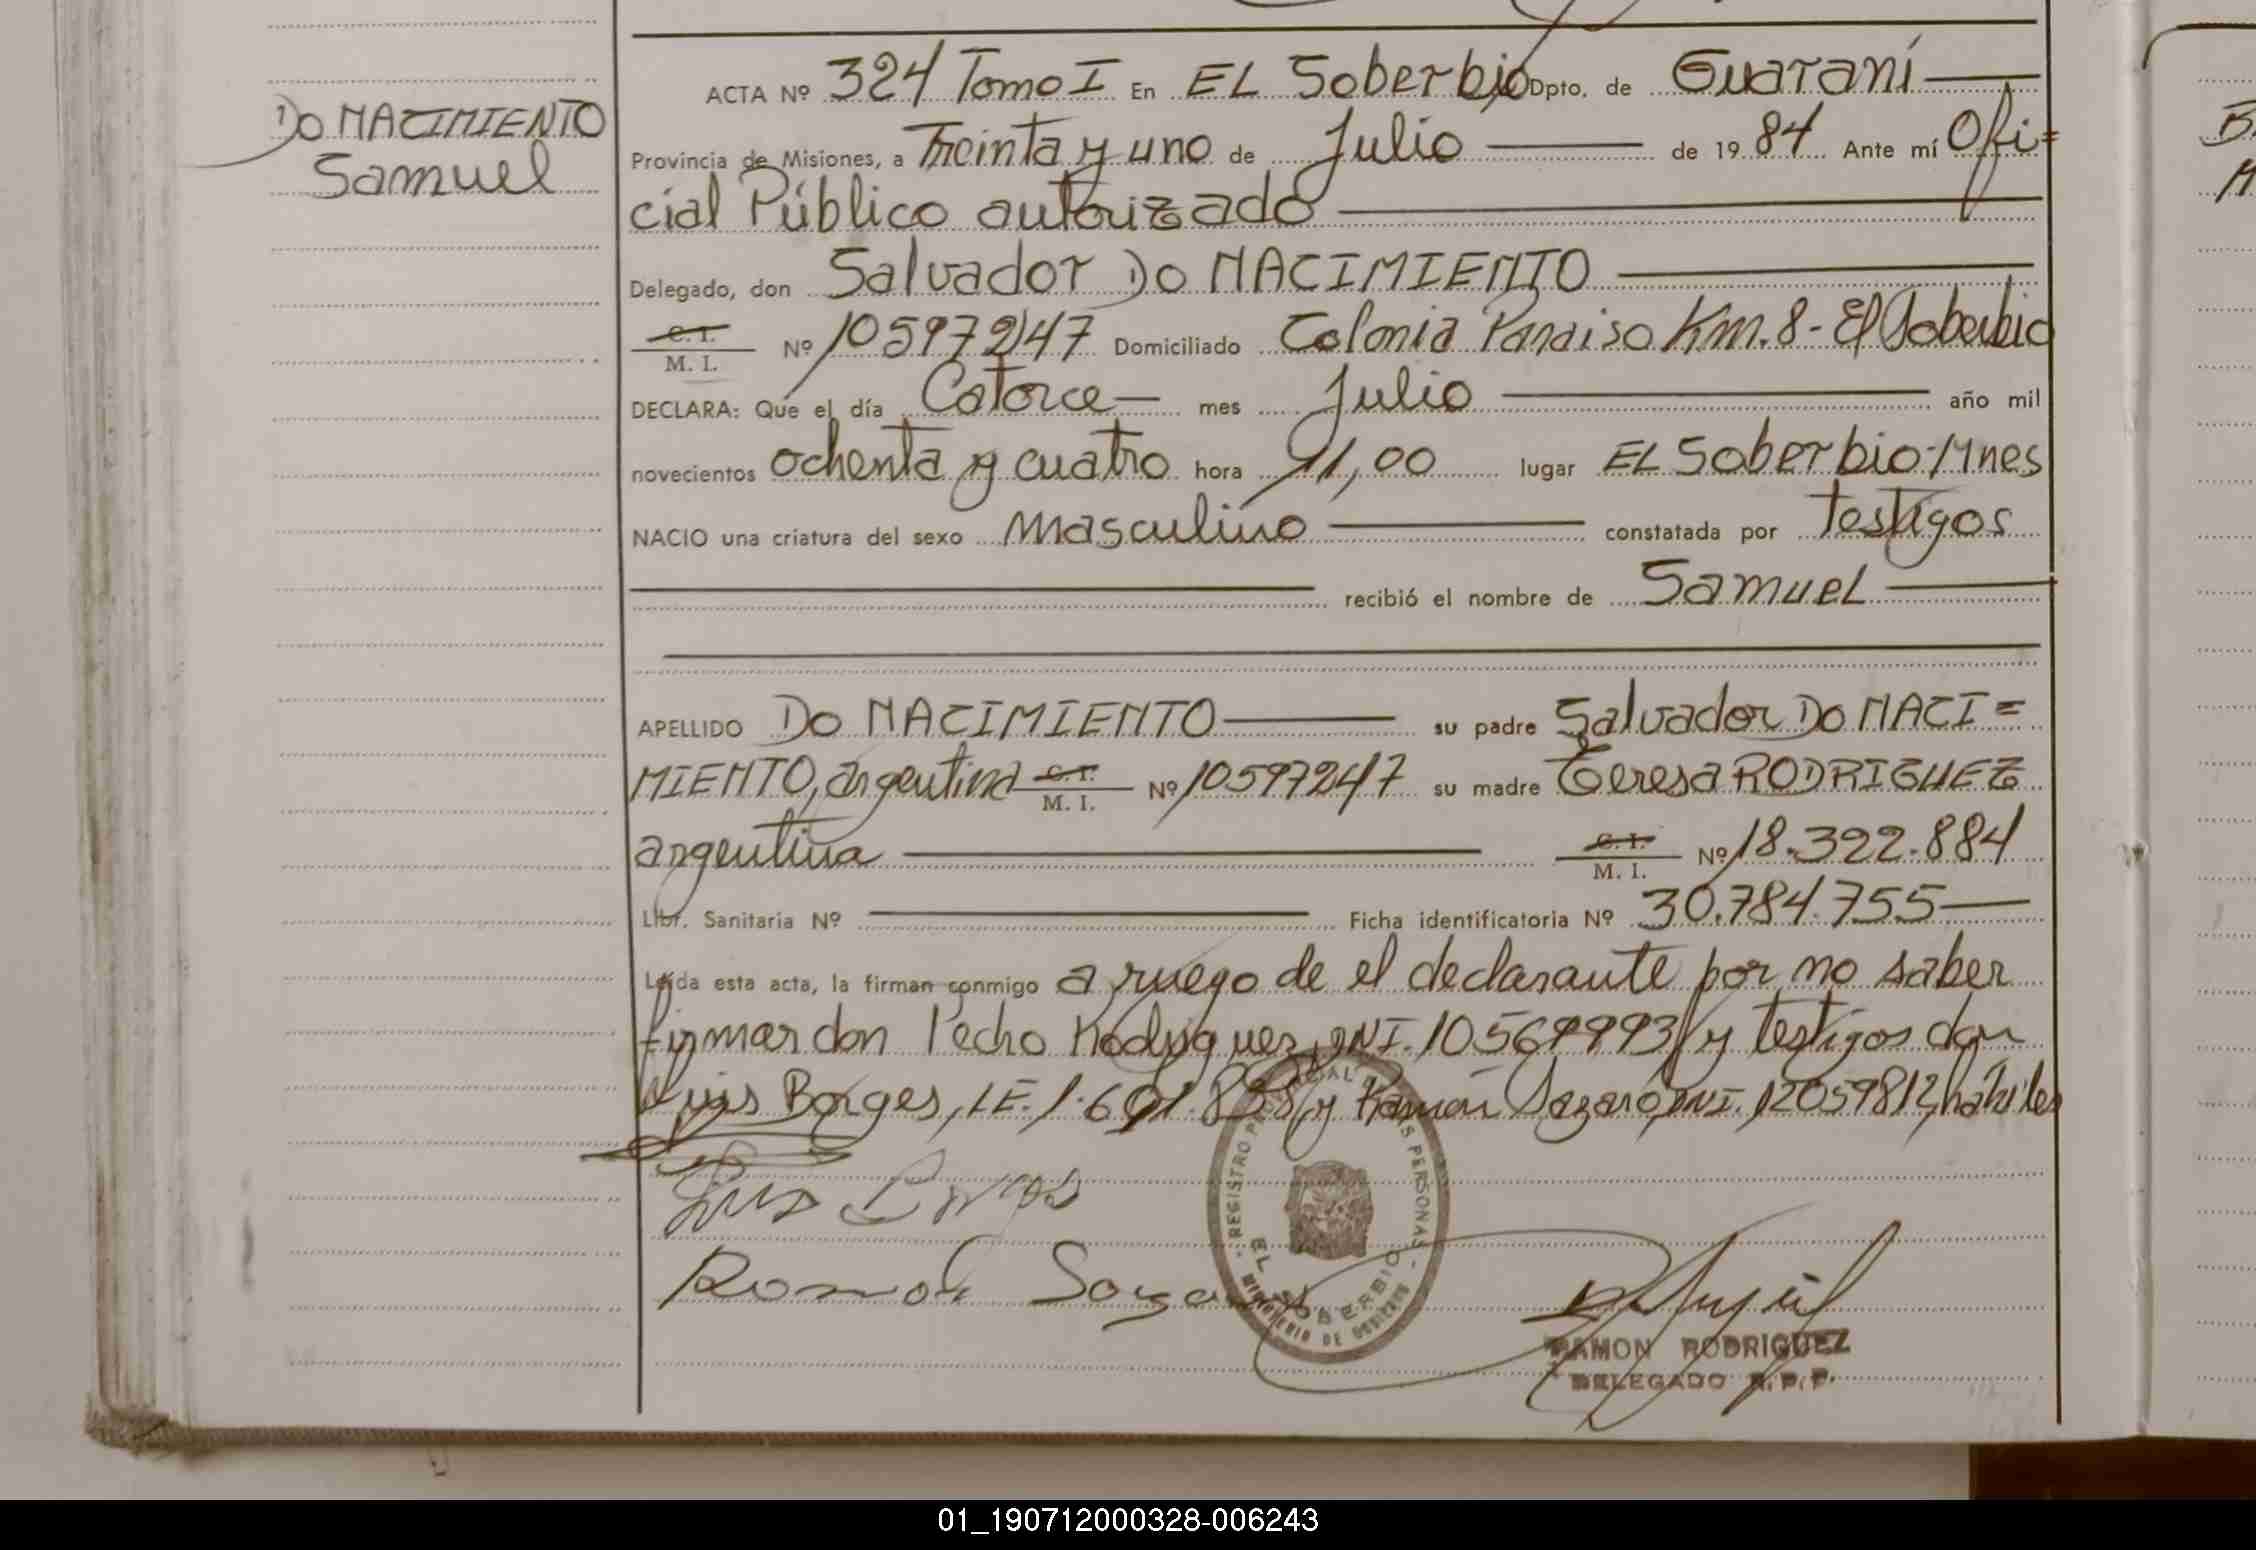 DO NACIMIENTO
Samuel
ACTA Nº 324 Tomo I En EL Soberbio Dpto. de Guaraní
Provincia de Misiones, a Treinta y uno de Julio de 1984 Ante mí Ofi=
cial Público autorizado
Delegado, don Salvador DO NACIMIENTO
C. I.
M. I. Nº 10597247 Domiciliado Colonia Paraiso Km. 8 - El Soberbio
DECLARA: Que el día Catorce mes Julio año mil
novecientos ochenta y cuatro hora 11,00 lugar EL Soberbio-Mnes
NACIO una criatura del sexo masculino constatada por testigos
recibió el nombre de Samuel
APELLIDO DO NACIMIENTO su padre Salvador DO NACI=
MIENTO, argentina C. I. M. I. Nº 10597247 su madre Teresa RODRIGUEZ
argentina C. I. M. I. Nº 18.322.884
Libr. Sanitaria Nº Ficha identificatoria Nº 30.784.755
Leída esta acta, la firman conmigo a ruego de el declarante por no saber
firmar don Pedro Rodriguez, DNI. y testigos don
Luis Borges, LE. y Ramón DNI. 12059812, hábiles
Ramón
REGISTRO PERSONAS
EL SOBERBIO
MINISTERIO DE GOBIERNO
RAMON RODRIGUEZ
DELEGADO R.P.P.
B
M
01_190712000328-006243